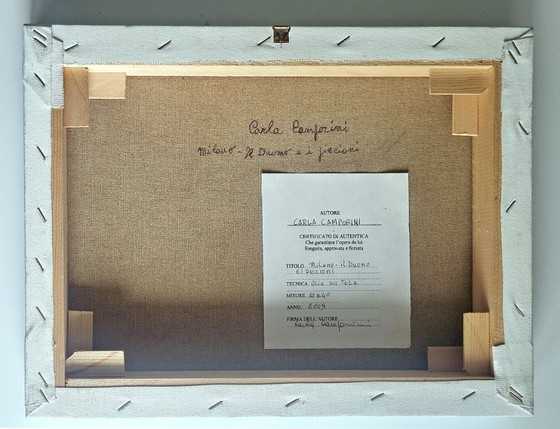 Carla Camporini
Milano - Il Duomo e i piccioni
AUTORE
CARLA CAMPORINI
CERTIFICATO DI AUTENTICA
Che garantisce l'opera da lui
Eseguita, approvata e firmata
TITOLO Milano - il Duomo
e i piccioni
TECNICA Olio su tela
MISURE
ANNO 2009
FIRMA DELL'AUTORE
Carla Camporini